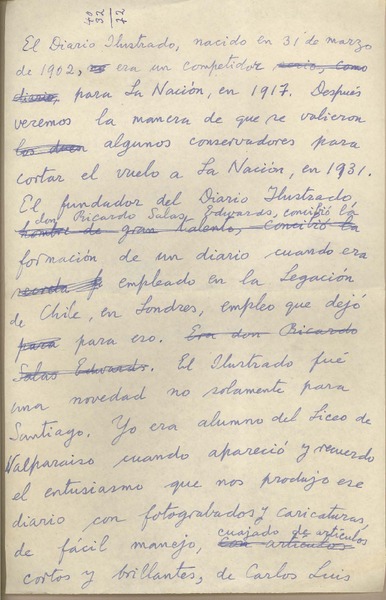 40
32
72
El Diario Ilustrado, nacido en 31 de marzo
de 1902, era un competidor serio, como
diario, para La Nación, en 1917. Después
veremos la manera de que se valieron
los dueñ algunos conservadores para
cortar el vuelo a La Nación, en 1931.
El fundador del Diario Ilustrado
don Ricardo Salas Edwards, concibió la
hombre de gran talento, concibió la
formación de un diario cuando era
empleado en la Legación
de Chile, en Londres, empleo que dejó
para para eso. Era don Ricardo
Salas Edwards. El Ilustrado fué
una novedad no solamente para
Santiago. Yo era alumno del Liceo de
Valparaiso cuando apareció y recuerdo
el entusiasmo que nos produjo ese
diario con fotograbados y caricaturas,
de fácil manejo, cuajado de artículos
con artículos
cortos y brillantes, de Carlos Luis